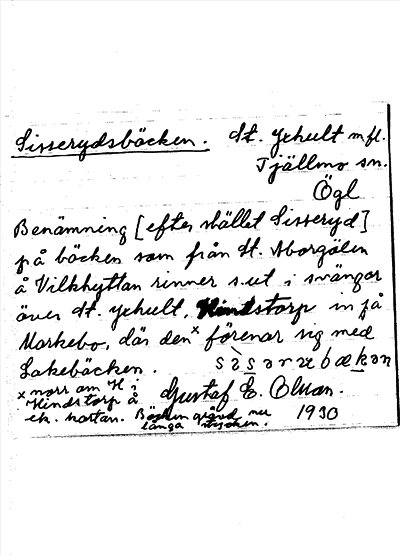 Sisserydsbäcken. St. Yxhult m fl.
Tjällmo sn.
Ögl
Benämning [efter stället Sisseryd]
på bäcken som från St. Morgölen
å Vilkhyttan rinner s.ut i svängar
över St. Yxhult, Hindstorp in på
Markebo, där den x förenar sig med
Lakebäcken.
x norr om H i
Hindstorp å
ek. kartan. Bäcken grävd ner
långa stycken.
Gustaf E. Olsson. 1930